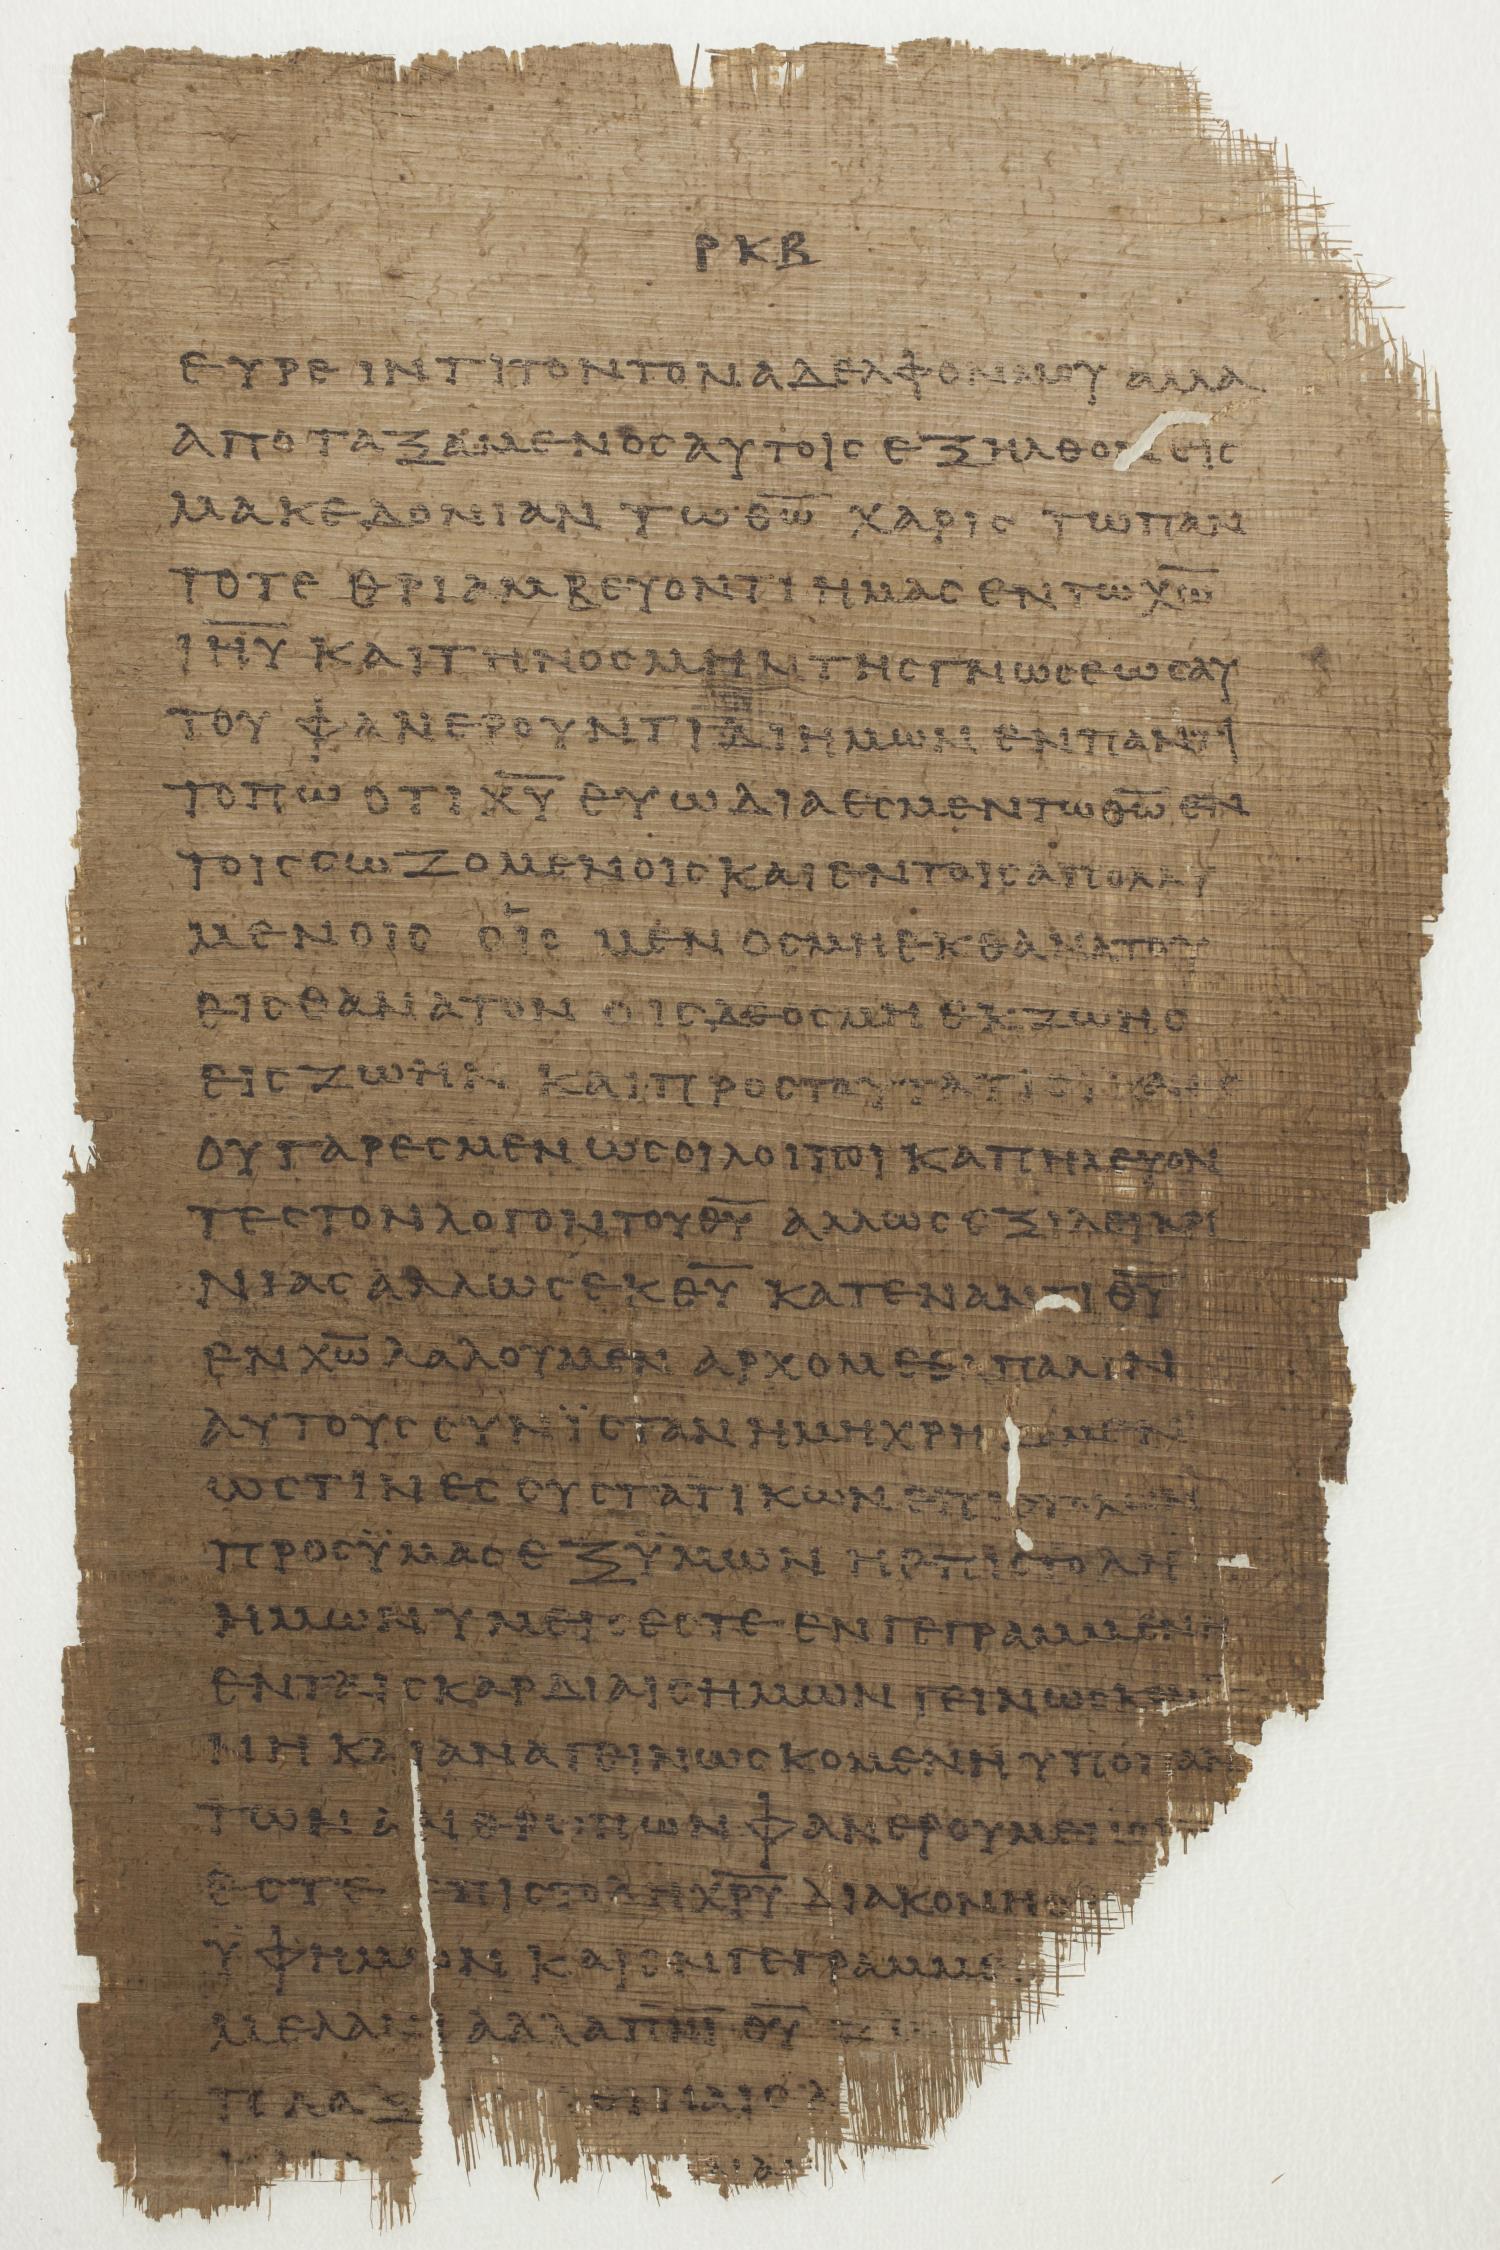 ΡΚΒ
ΕΥΡΕΙΝ ΤΙΤΟΝ ΤΟΝ ΑΔΕΛΦΟΝ ΜΟΥ ΑΛΛΑ
ΑΠΟΤΑΞΑΜΕΝΟΣ ΑΥΤΟΙΣ ΕΞΗΛΘΟΝ ΕΙΣ
ΜΑΚΕΔΟΝΙΑΝ ΤΩ Θ̅Ω̅ ΧΑΡΙΣ ΤΩ ΠΑΝ
ΤΟΤΕ ΘΡΙΑΜΒΕΥΟΝΤΙ ΗΜΑΣ ΕΝ ΤΩ Χ̅Ω̅
Ι̅Η̅Υ̅ ΚΑΙ ΤΗΝ ΟΣΜΗΝ ΤΗΣ ΓΝΩΣΕΩΣ ΑΥ
ΤΟΥ ΦΑΝΕΡΟΥΝΤΙ ΔΙ ΗΜΩΝ ΕΝ ΠΑΝΤΙ
ΤΟΠΩ ΟΤΙ Χ̅Υ̅ ΕΥΩΔΙΑ ΕΣΜΕΝ ΤΩ Θ̅Ω̅ ΕΝ
ΤΟΙΣ ΣΩΖΟΜΕΝΟΙΣ ΚΑΙ ΕΝ ΤΟΙΣ ΑΠΟΛΛΥ
ΜΕΝΟΙΣ ΟΙΣ ΜΕΝ ΟΣΜΗ ΕΚ ΘΑΝΑΤΟΥ
ΕΙΣ ΘΑΝΑΤΟΝ ΟΙΣ ΔΕ ΟΣΜΗ ΕΚ ΖΩΗΣ
ΕΙΣ ΖΩΗΝ ΚΑΙ ΠΡΟΣ ΤΑΥΤΑ ΤΙΣ
ΟΥ ΓΑΡ ΕΣΜΕΝ ΩΣ ΟΙ ΛΟΙΠΟΙ ΚΑΠΗΛΕΥΟΝ
ΤΕΣ ΤΟΝ ΛΟΓΟΝ ΤΟΥ Θ̅Υ̅ ΑΛΛ ΩΣ ΕΞ ΙΛΕΙΚΡΙ
ΝΙΑΣ ΑΛΛ ΩΣ ΕΚ Θ̅Υ̅ ΚΑΤΕΝΑΝΤΙ Θ̅Υ̅
ΕΝ Χ̅Ω̅ ΛΑΛΟΥΜΕΝ ΑΡΧΟΜΕΘΑ ΠΑΛΙΝ
ΑΥΤΟΥΣ ΣΥΝΪΣΤΑΝ Η ΜΗ ΧΡΗΖΟΜΕΝ
ΩΣ ΤΙΝΕΣ ΣΥΣΤΑΤΙΚΩΝ ΕΠΙΣΤΟΛΩΝ
ΠΡΟΣ ΫΜΑΣ Η ΕΞ ΫΜΩΝ Η ΕΠΙΣΤΟΛΗ
ΗΜΩΝ ΥΜΕΙΣ ΕΣΤΕ ΕΝΓΕΓΡΑΜΜΕΝΗ
ΕΝ ΤΑΙΣ ΚΑΡΔΙΑΙΣ ΗΜΩΝ ΓΕΙΝΩΣΚΟΜΕ
ΝΗ ΚΑΙ ΑΝΑΓΕΙΝΩΣΚΟΜΕΝΗ ΥΠΟ ΠΑΝ
ΤΩΝ ΑΝΘΡΩΠΩΝ ΦΑΝΕΡΟΥΜΕΝΟΙ
ΕΣΤΕ ΕΠΙΣΤΟΛΗ Χ̅Ρ̅Υ̅ ΔΙΑΚΟΝΗΘ
Ϋ̓Φ ΗΜΩΝ ΚΑΙ ΕΝΓΕΓΡΑΜΜΕ
ΜΕΛΑΝΙ ΑΛΛΑ Π̅Ν̅Ι̅ Θ̅Υ̅
ΠΛΑΞ